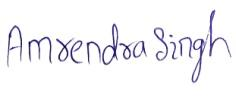 Amrendra Singh